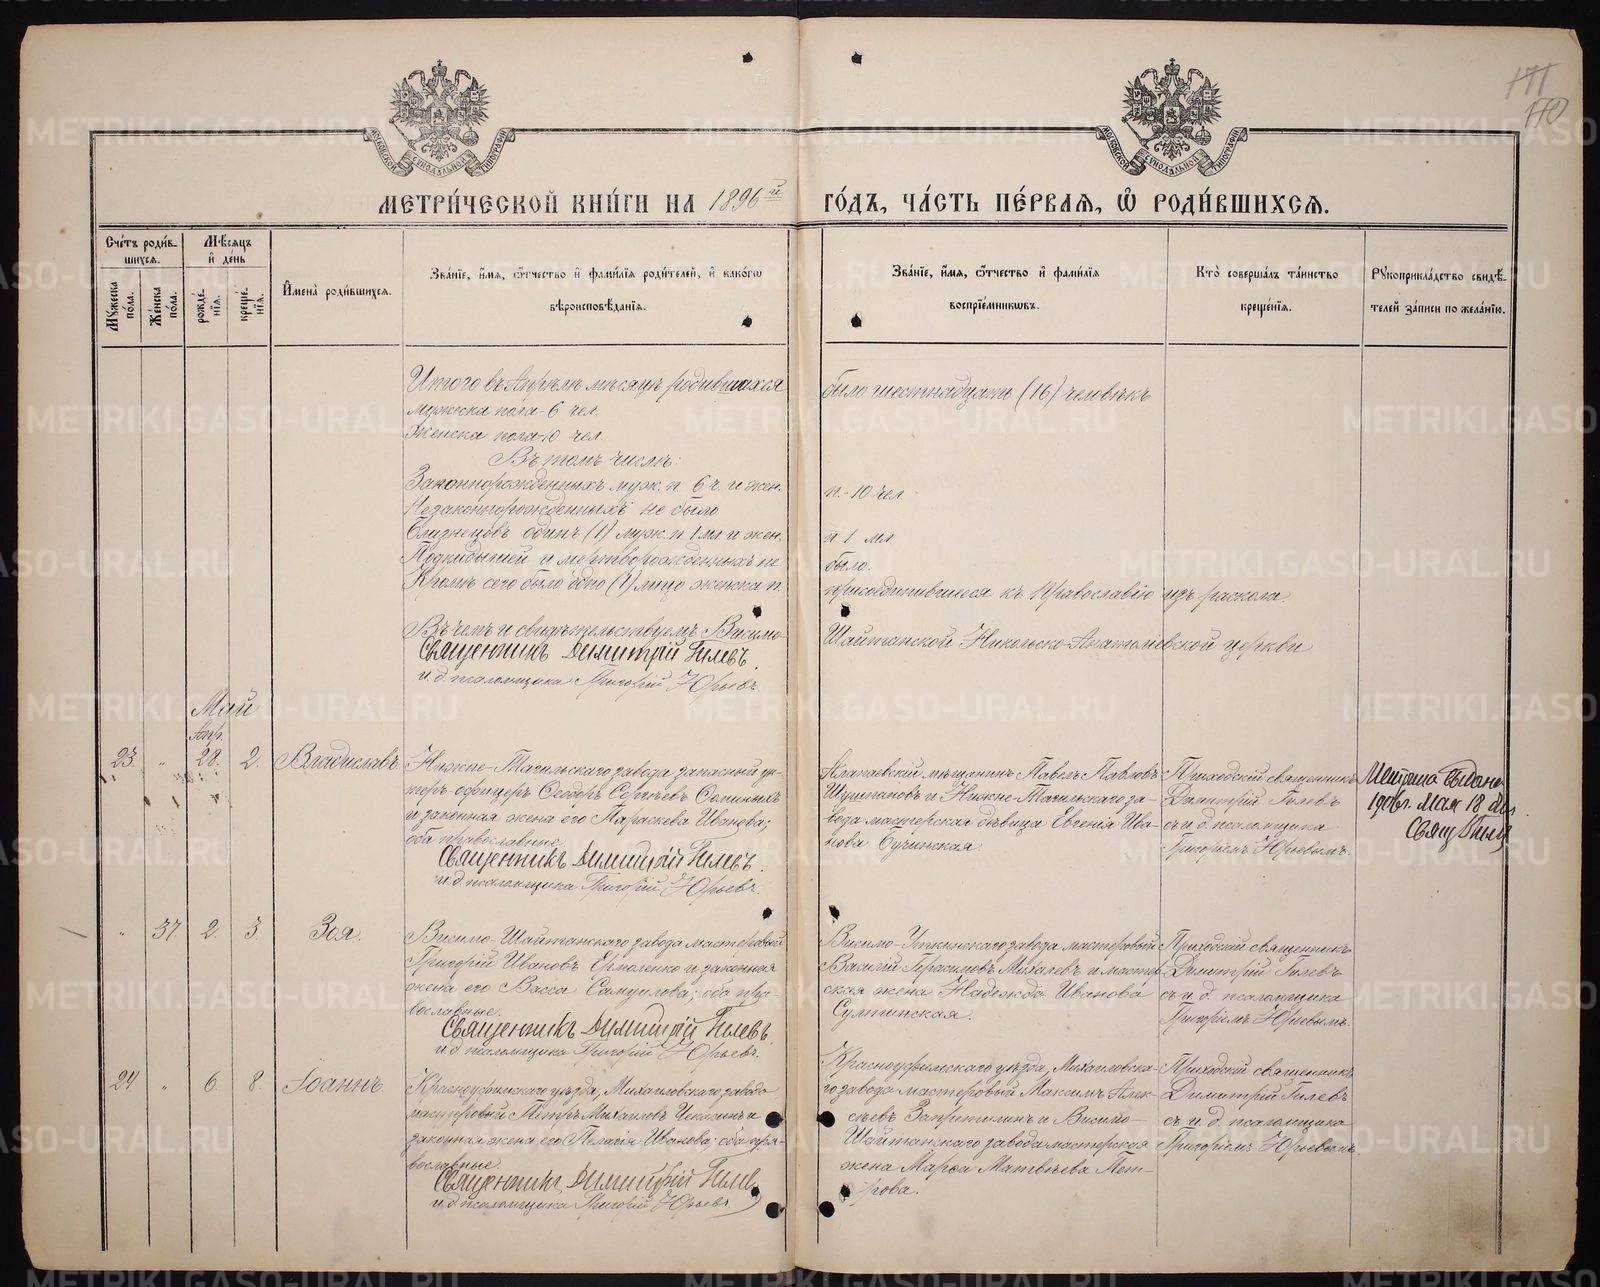 171
170
МОСКОВСКОЙ СѴНОДАЛЬНОЙ ТИПОГРАФІИ
МОСКОВСКОЙ СѴНОДАЛЬНОЙ ТИПОГРАФІИ
МЕТРИ́ЧЕСКОЙ КНИ́ГИ НА 1896й ГО́ДЪ, ЧА́СТЬ ПЕ́РВАЯ, Ѡ РОДИ́ВШИХСЯ.
Сче́тъ роди́в-
шихся.
Мѣ́сяцъ
и де́нь
Му́жеска по́ла.
Же́нска по́ла.
рожде́-
нїя.
креще́-
нїя.
Имена̀ роди́вшихся.
Зва́нїе, и́мя, ѻ́тчество и фами́лїя роди́телей, и како́гѡ
вѣроисповѣ́данїя.
Зва́нїе, и́мя, ѻ́тчество и фами́лїя
воспрїе́мникѡвъ.
Кто̀ соверша́лъ та́инство
креще́нїя.
Рукоприкла́дство свидѣ́-
телей за́писи по жела́нїю.
Итого въ Апрѣлѣ мѣсяцѣ родившихся было шестнадцать (16) человѣкъ
мужеска пола - 6 чел.
Женска пола - 10 чел.
Въ томъ числѣ:
Законнорожденныхъ муж. п. 6 ч. и жен. п. - 10 чел.
Незаконнорожденныхъ не было
Близнецовъ одинъ (1) муж. п 1 мл и жен. п 1 мл
Подкидышей и мертворожденныхъ не было.
Кромѣ сего было одно (1) лицо женска п. присоединившееся къ Православію изъ раскола.
Въ чемъ и свидѣтельствуемъ Висимо-Шайтанской Николько-Анатоліевской церкви
Священникъ Димитрій Гилевъ.
и. д. псаломщика Григорій Юрьевъ.
Май
Апр.
23 " 28. 2. Владиславъ
Нижне-Тагильскаго завода запасный ун-
теръ-офицеръ Ѳеодоръ Сергѣевъ
и законная жена его Параскева Иванова;
оба православные.
Священникъ Димитрій Гилевъ.
и. д. псаломщика Григорій Юрьевъ.
Алапаевскій мѣщанинъ Павелъ Павловъ
Шушпановъ и Нижне-Тагильскаго за-
вода мастерская дѣвица Евгенія Ива-
нова Бучинская.
Приходскій священникъ
Димитрій Гилевъ
съ и. д. псаломщика
Григоріемъ Юрьевымъ.
Метрика выдана
Мая 18 дня
Свящ Гилев
" 37. 2. 3. Зоя.
Висимо-Шайтанскаго завода мастеровой
Григорій Ивановъ Ермоленко и законная
жена его Васса Самуилова; оба пра-
вославные.
Священникъ Димитрій Гилевъ.
и. д. псаломщика Григорій Юрьевъ.
Висимо-Уткинскаго завода мастеровой
Василій Герасимовъ Михалевъ и мастер-
ская жена Надежда Иванова
Сулпинская.
Приходскій священникъ
Димитрій Гилевъ
съ и. д. псаломщика
Григоріемъ Юрьевымъ.
24 " 6. 8. Іоаннъ.
Красноуфимскаго уѣзда, Михаиловскаго завода
мастеровой Петръ Михаиловъ Чекасинъ и
законная жена его Пелагія Иванова; оба пра-
вославные.
Священникъ Димитрій Гилев
и. д. псаломщика Григорій Юрьевъ.
Красноуфимскаго уѣзда, Михаиловска-
го завода мастеровой Максимъ Алек-
сѣевъ Запретилинъ и Висимо-
Шайтанскаго завода мастерская
жена Марѳа Матвѣева Пет-
рова.
Приходскій священникъ
Димитрій Гилевъ
съ и. д. псаломщика
Григоріемъ Юрьевымъ.
METRIKI.GASO-URAL.RU